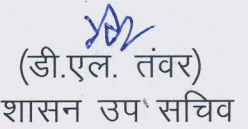 (डी.एल. तंवर)
शासन उप सचिव